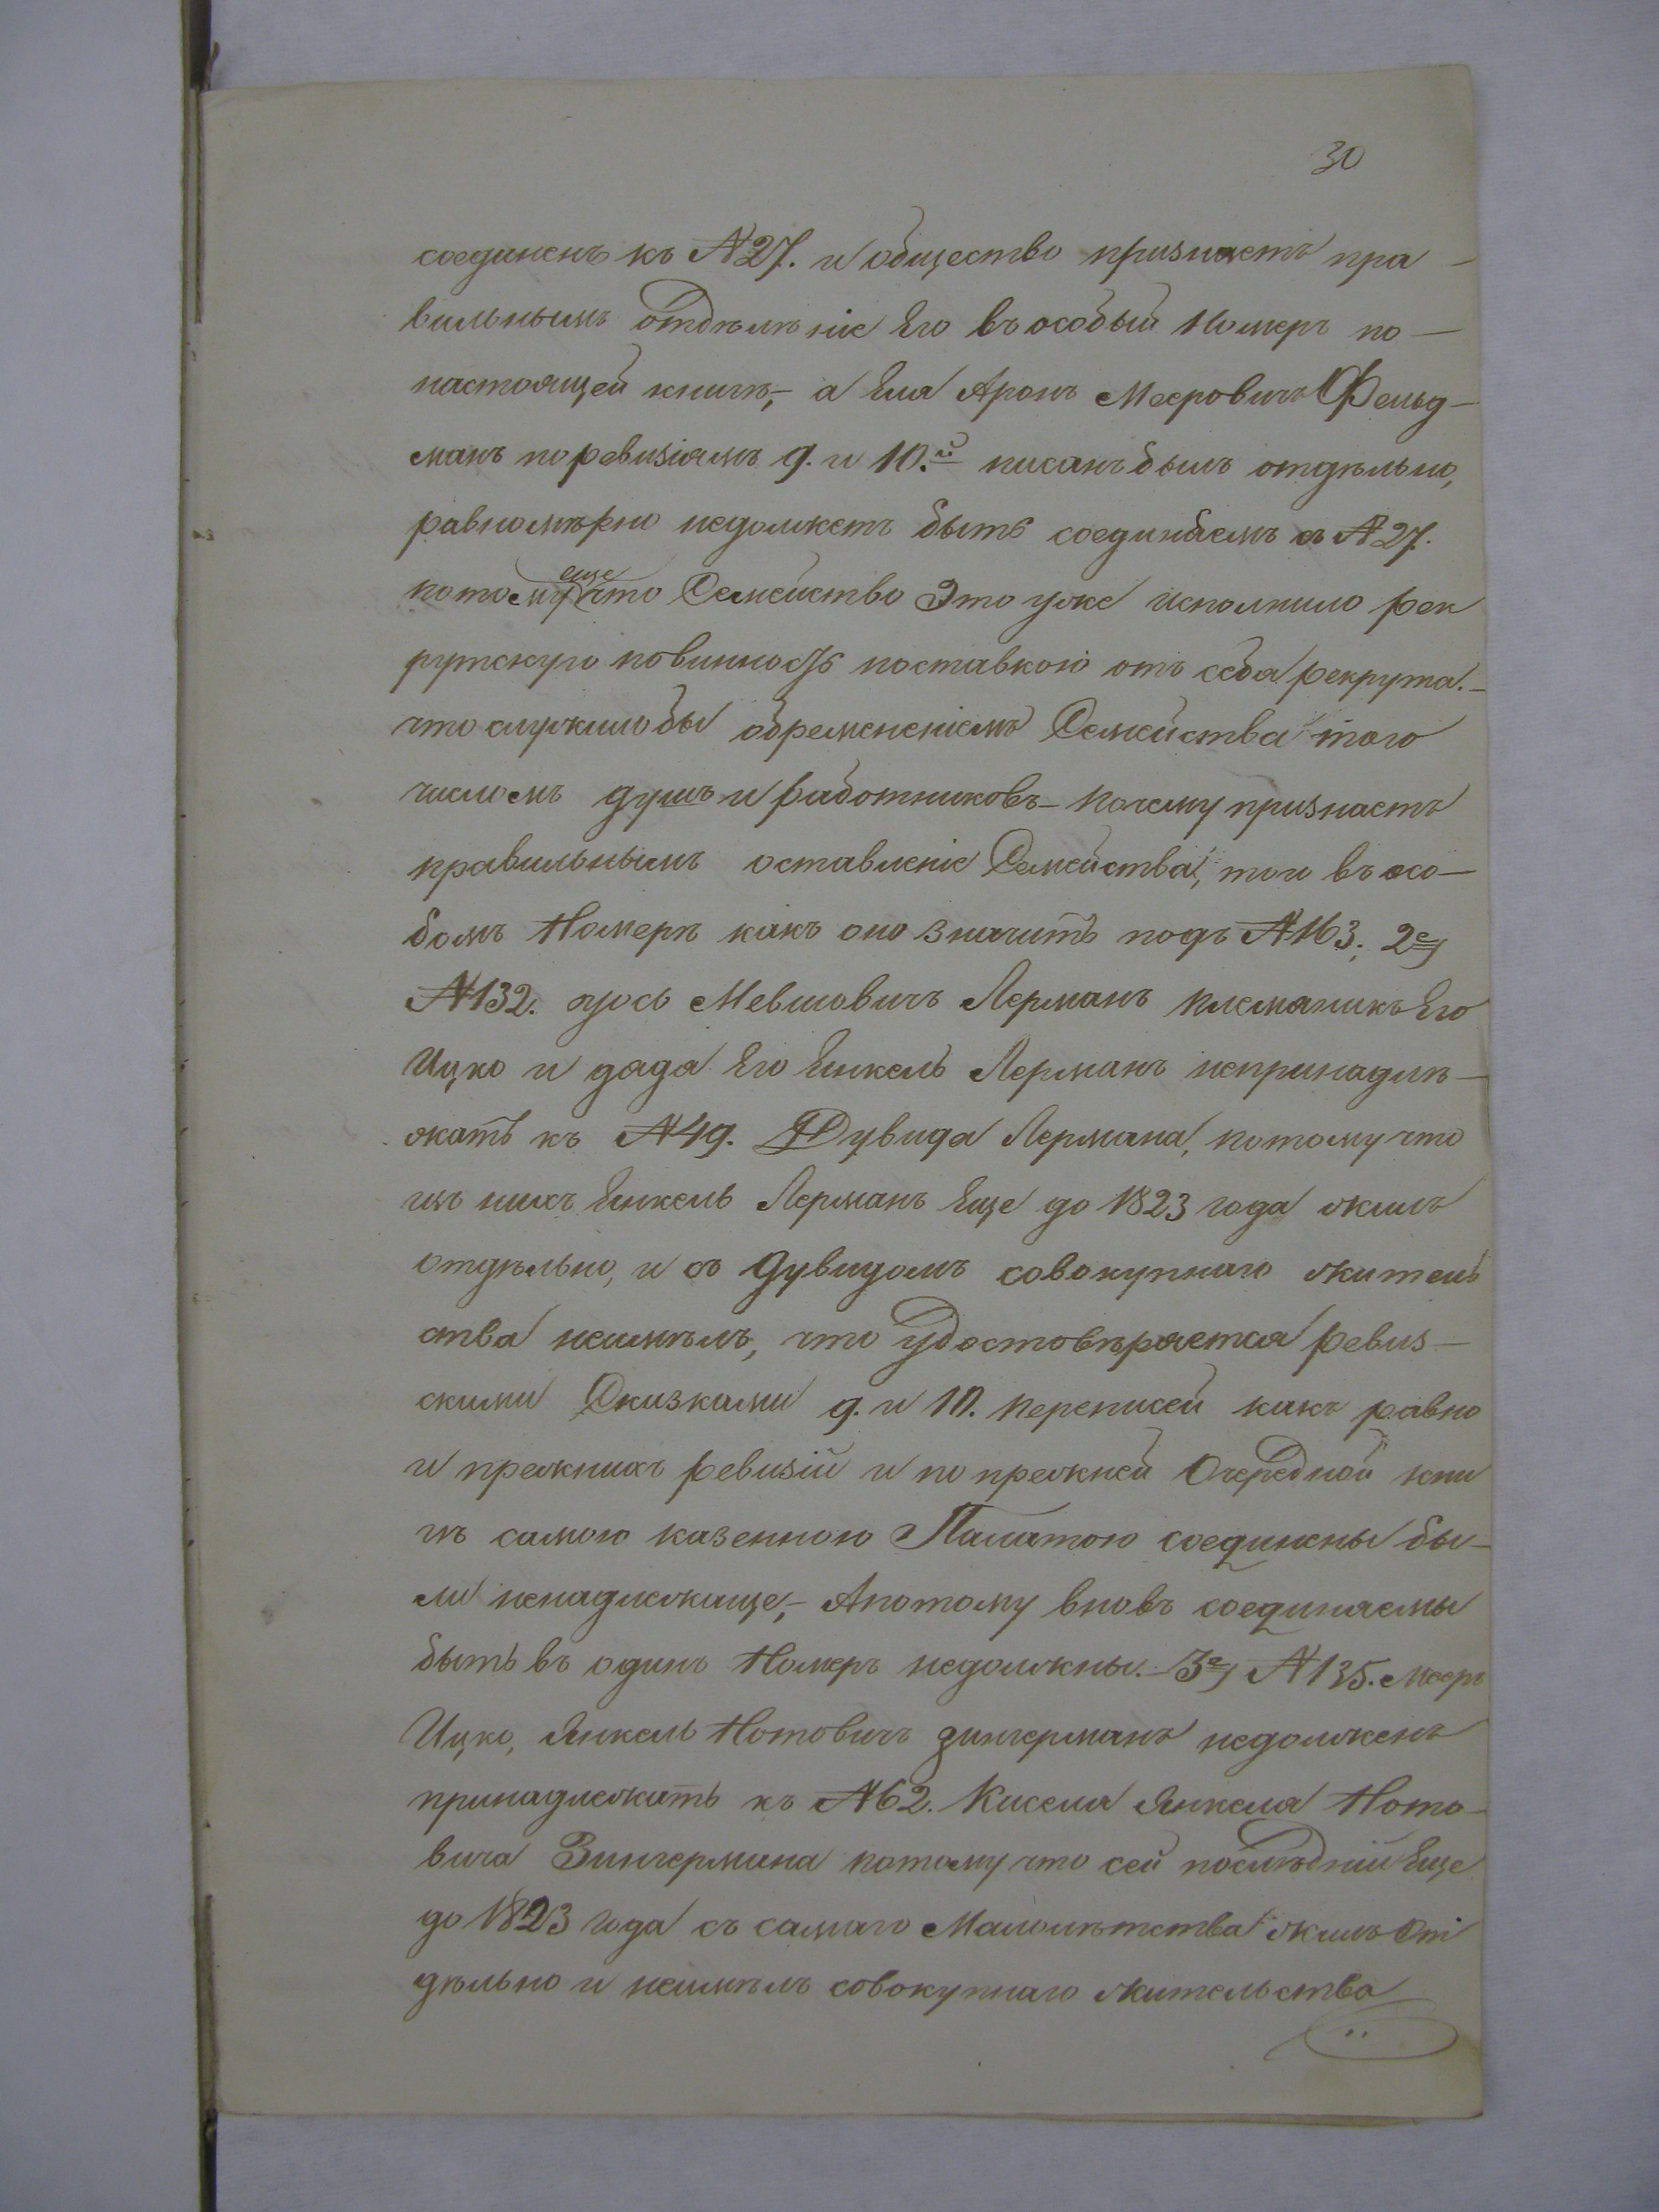 30
соединенъ къ №27. и общество признаетъ пра-
вильнымъ отдѣленіе Его въ особый Номеръ по-
настоящей книгѣ,- а Ехил Аронъ Мееровичъ Фельд-
манъ по ревизіямъ 9. и 10.й писанъ былъ отдѣльно,
равномѣрно недолжетъ быть соединяемъ съ №27.
потому еще что Семейство Это уже исполнило рек
рутскую повинность поставкою отъ себя рекрута.-
что служило бы обремененіемъ Семейства того
числомъ душъ и работниковъ- почему признаетъ
правильнымъ оставленіе Семейства, того въ осо-
бомъ Номерѣ какъ оно значитъ подъ №163; 2е)
№132. Мевшовичъ Лерманъ племяникъ Его
Ицко и дядя Его Янкель Лерманъ непринадлѣ-
жатъ къ №49. Дувида Лермана, потому что
изъ нихъ Янкель Лерманъ Еще до 1823 года жилъ
отдѣльно, и съ Дувидомъ совокупнаго житель
ства неимѣлъ, что удостовѣряется ревиз-
скими Сказками 9. и 10. переписей какъ равно
и прежнихъ ревизій и по прежней Очередной кни
гѣ самою казенною Палатою соединены бы-
ли ненадлежаще,- Апотому вновь соединяемы
быть въ одинъ Номеръ недолжны.- 3е) №135. Мееръ
Ицко, Янкель Нотовичъ Зингерманъ недолженъ
принадлежать къ №62. Киселя Янкеля Ното-
вича Зингермана потому что сей послѣдній Еще
до 1823 года съ самаго Малолѣтства жилъ От
дѣльно и неимѣлъ совокупнаго жительства